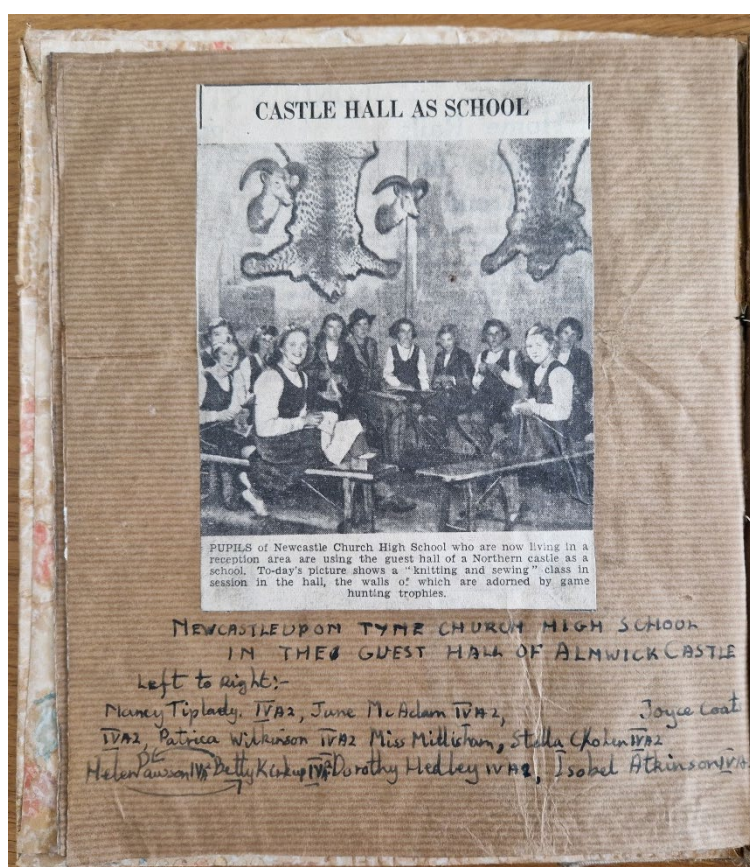 CASTLE HALL AS SCHOOL
PUPILS of Newcastle Church High School who are now living in a
reception area are using the guest hall of a Northern castle as a
school. To-day's picture shows a "knitting and sewing" class in
session in the hall, the walls of which are adorned by game
hunting trophies.
NEWCASTLE UPON TYNE CHURCH HIGH SCHOOL
IN THE GUEST HALL OF ALNWICK CASTLE
Left to Right:-
Nancy Tiplady. IVA2, June McAdam IVA2, Joyce Coat
IVA2, Patrica Wilkinson IVA2 Miss Millisham, Stella Cholen IVA2
Helen Dawson IVA2 Betty Kirkup IVA2 Dorothy Hedley IVA2, Isobel Atkinson IVA2